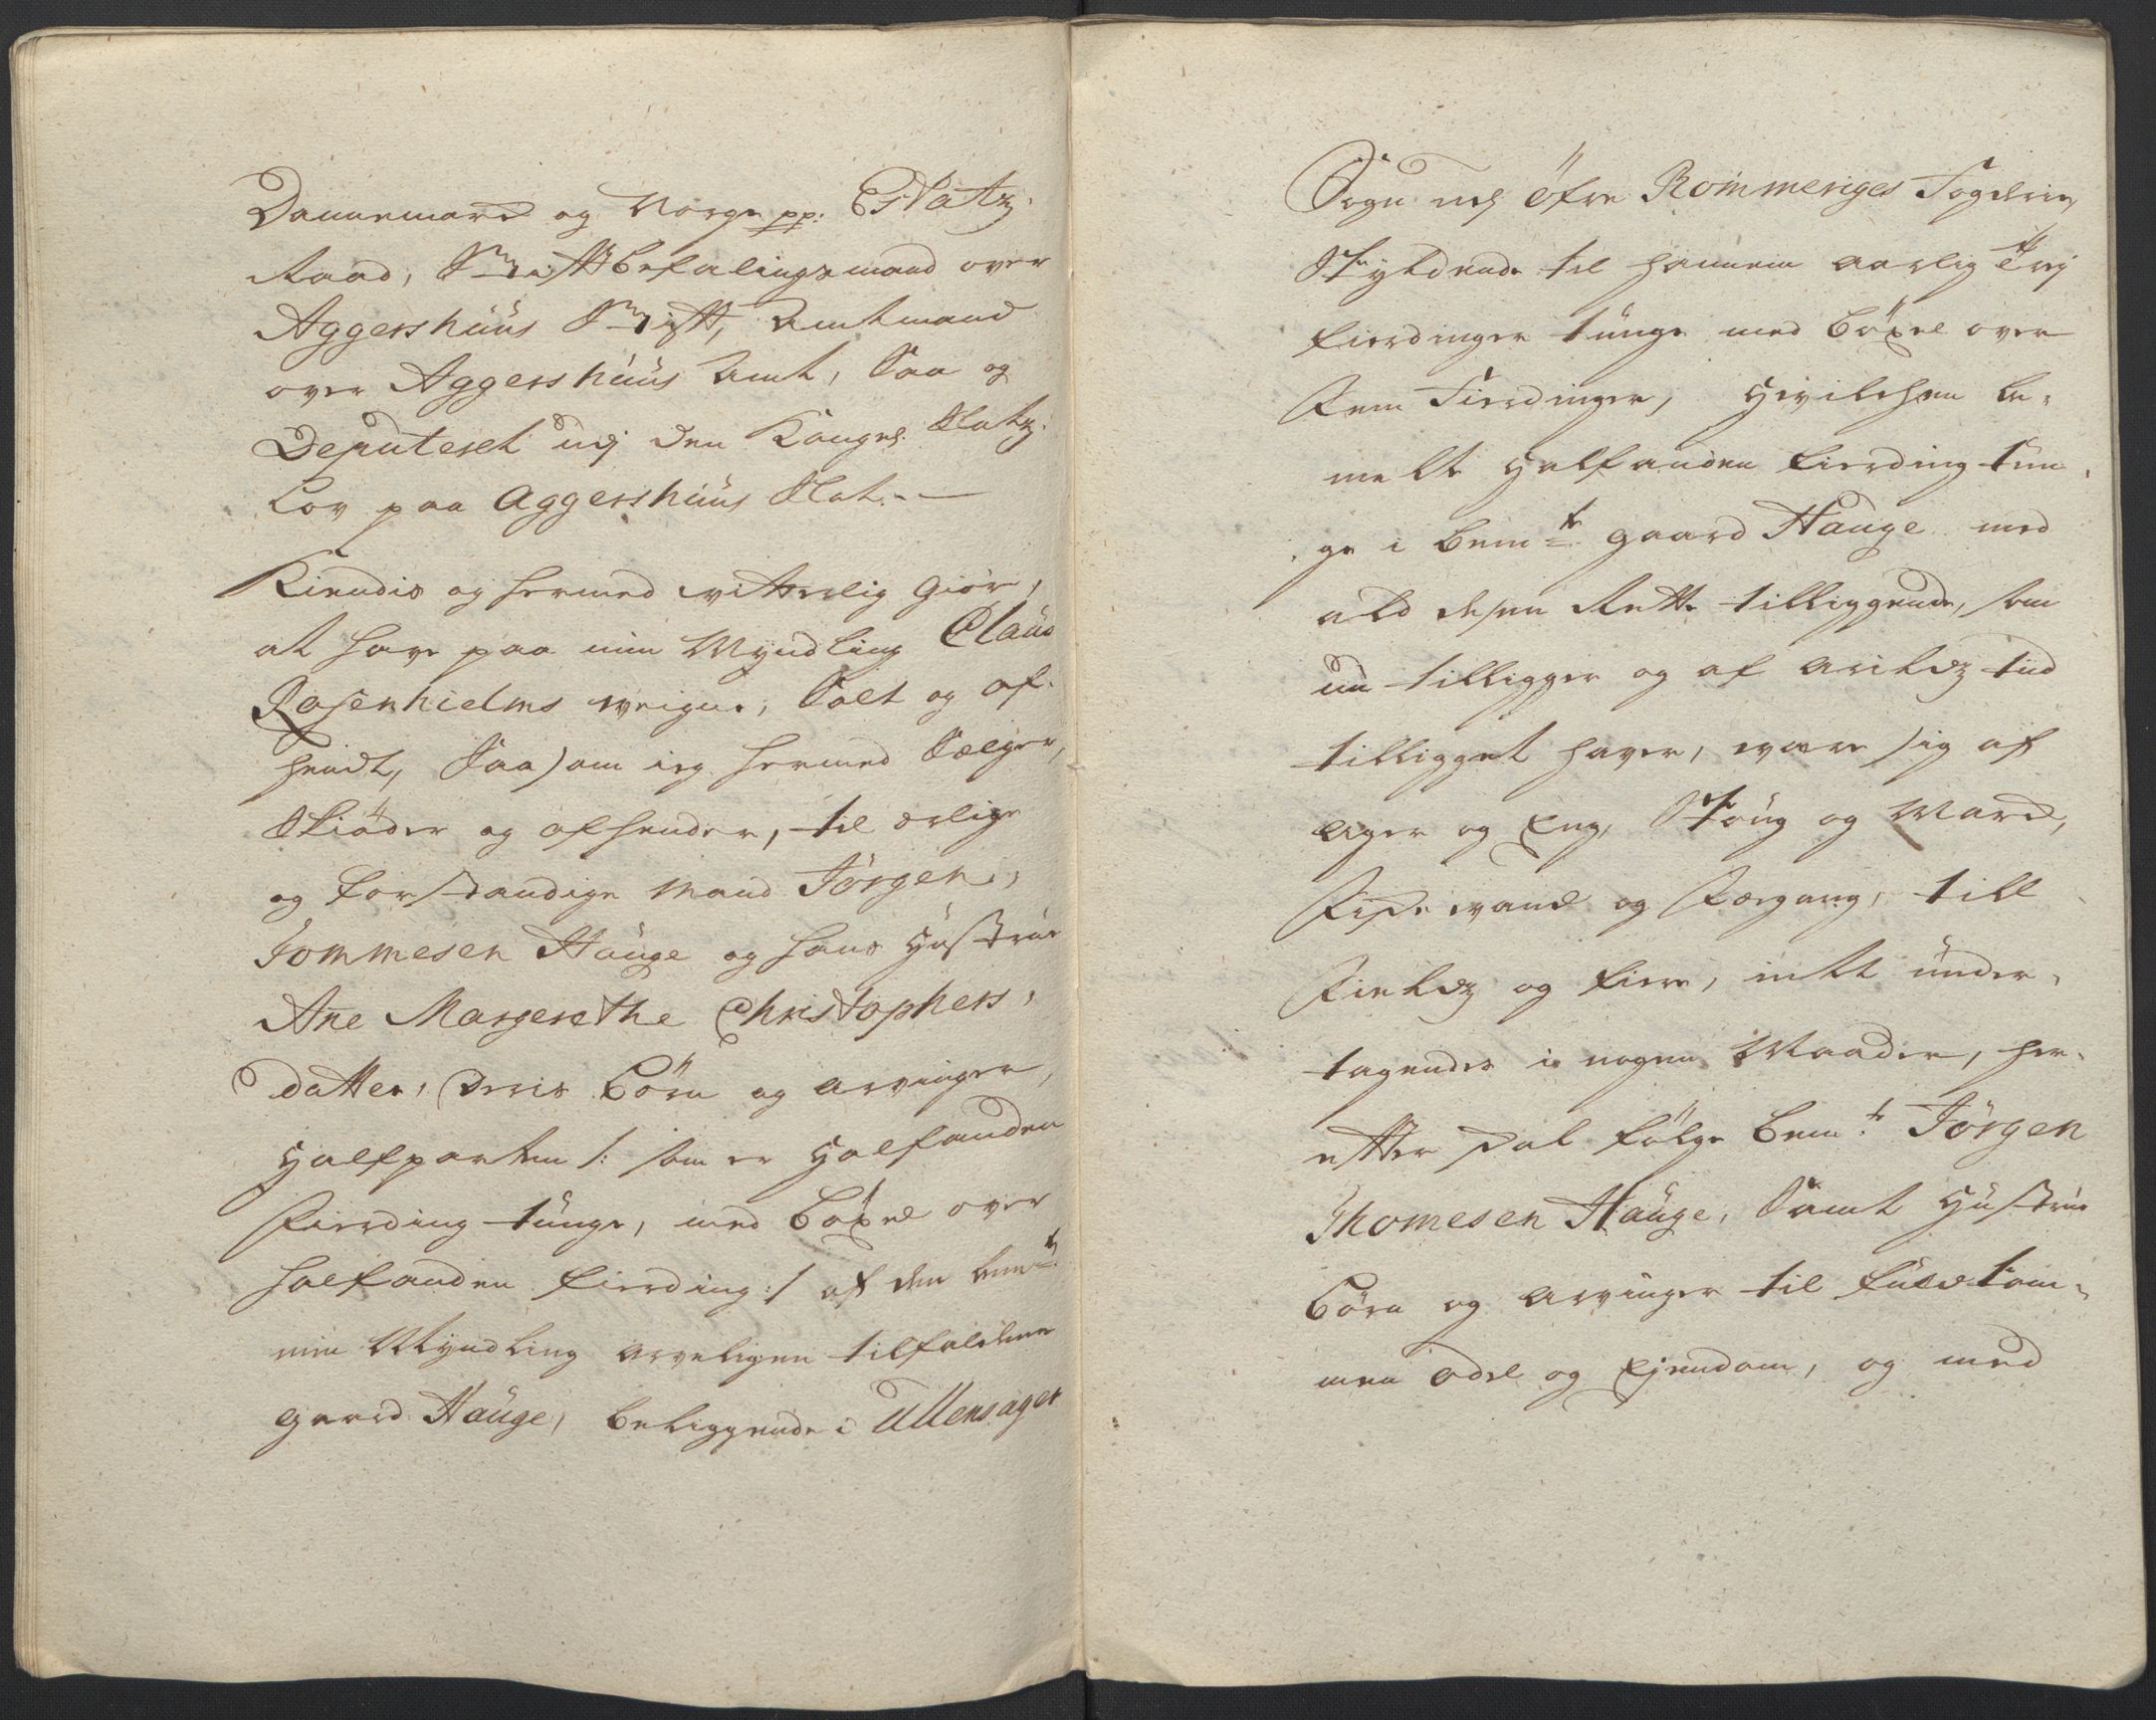 Dannemarck og Norge pp: Etatz
Raad, Stiftbefalingsmand over
Aggershuus Stift, Amtmand
over Aggershuus Amt, Saa og
Deputeret udj den Kongel. Slotz
Lov paa Aggershuus Slot.
Kiendis og hermed witterlig Giør,
at have paa min Myndling Claus
Rosenhielms weigne, Solt og af¬
hendt, Saasom ieg hermed Sælger,
Skiøder og afhender, til ærlige
og forstandige Mand Jørgen
Tommesen Hauge og hans Hustrue
Ane Margerethe Christophers,
datter, deris Børn og Arvinger,
Halfparten /: som er Halfanden
Fierding tunge, med Bøxel over
halfanden Fierding :/ af den bemte
min Myndling arveligen tilfaldene
gaard Hauge, beliggende i Ullensager
Sogn udj Øfre Rommeriges Fogderie,
Skyldende til hannem aarlig Trej
fierdinger tunge med Bøxel over
Fem Fierdinger, Hvilchen be¬
melte Halfanden fierding tun¬
ge i bemte gaard Hauge med
ald desen Rette tilliggende, som
nu tilligger og af Arildz tiid
tilligget haver, være sig af
Ager og Eng, Skoug og Marck,
Fiske vand og Fægang, till
Field og fiere, intet under¬
tagendes i nogen Maader, her¬
efter skal følge bemte Jørgen
Thomesen Hauge, Samt Hustrue
Børn og Arvinger til fuldkom¬
men Odel og Ejendom, og med